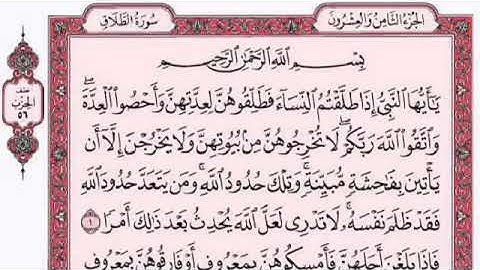 سُورَةُ الطَّلَاقِ
الجُزْءُ الثَّامِنُ وَالعِشْرُونَ
نصف
الحزب
٥٦
بِسْمِ اللَّهِ الرَّحْمَٰنِ الرَّحِيمِ
يَٰٓأَيُّهَا ٱلنَّبِىُّ إِذَا طَلَّقْتُمُ ٱلنِّسَآءَ فَطَلِّقُوهُنَّ لِعِدَّتِهِنَّ وَأَحْصُوا۟ ٱلْعِدَّةَ ۖ
وَٱتَّقُوا۟ ٱللَّهَ رَبَّكُمْ ۖ لَا تُخْرِجُوهُنَّ مِنۢ بُيُوتِهِنَّ وَلَا يَخْرُجْنَ إِلَّآ أَن
يَأْتِينَ بِفَٰحِشَةٍ مُّبَيِّنَةٍ ۚ وَتِلْكَ حُدُودُ ٱللَّهِ ۚ وَمَن يَتَعَدَّ حُدُودَ ٱللَّهِ
فَقَدْ ظَلَمَ نَفْسَهُۥ ۚ لَا تَدْرِى لَعَلَّ ٱللَّهَ يُحْدِثُ بَعْدَ ذَٰلِكَ أَمْرًا ١
فَإِذَا بَلَغْنَ أَجَلَهُنَّ فَأَمْسِكُوهُنَّ بِمَعْرُوفٍ أَوْ فَارِقُوهُنَّ بِمَعْرُوفٍ